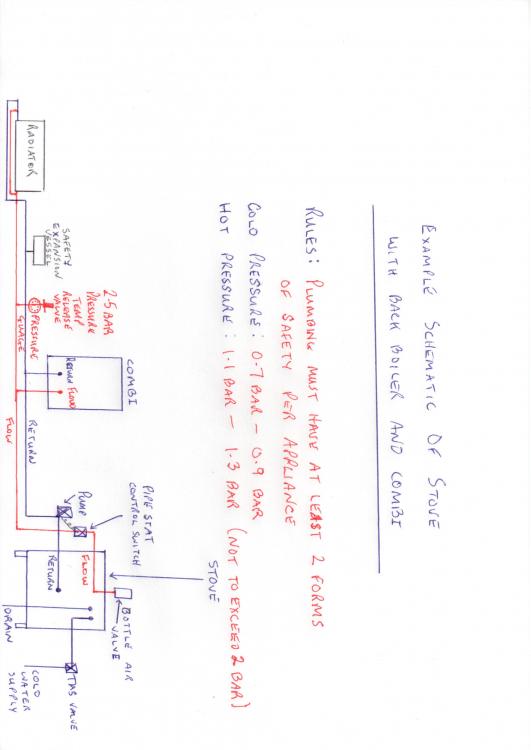 EXAMPLE SCHEMATIC OF STOVE
WITH BACK BOILER AND COMBI
RULES: PLUMBING MUST HAVE AT LEAST 2 FORMS
OF SAFETY PER APPLIANCE
COLD PRESSURE: 0.7 BAR - 0.9 BAR
HOT PRESSURE: 1.1 BAR - 1.3 BAR (NOT TO EXCEED 2 BAR)
STOVE
RADIATOR
SAFETY
EXPANSION
VESSEL
2.5 BAR
PRESSURE
TEMP
RELEASE
VALVE
PRESSURE
GUAGE
COMBI
RETURN
FLOW
PIPE STAT
CONTROL SWITCH
PUMP
BOTTLE AIR
VALVE
FLOW
RETURN
RETURN
FLOW
TAS VALVE
DRAIN
COLD
WATER
SUPPLY